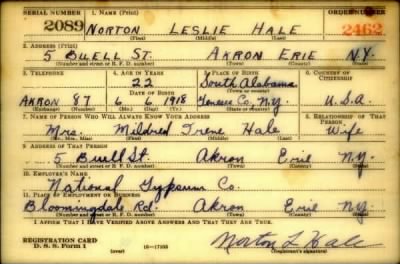 SERIAL NUMBER 1. NAME (Print) ORDER NUMBER
2089 NORTON LESLIE HALE 2462
(First) (Middle) (Last)
2. ADDRESS (Print)
5 BUELL ST. AKRON ERIE N.Y.
(Number and street or R. F. D. number) (Town) (County) (State)
3. TELEPHONE 4. AGE IN YEARS 5. PLACE OF BIRTH 6. COUNTRY OF CITIZENSHIP
22 South Alabama
DATE OF BIRTH (Town or county)
AKRON 87 6 6 1918 Genesee Co. N.Y. U.S.A.
(Exchange) (Number) (Mo.) (Day) (Yr.) (State or country)
7. NAME OF PERSON WHO WILL ALWAYS KNOW YOUR ADDRESS 8. RELATIONSHIP OF THAT PERSON
Mrs. Mildred Irene Hale Wife
(Mr., Mrs., Miss) (First) (Middle) (Last)
9. ADDRESS OF THAT PERSON
5 Buell St. Akron Erie N.Y.
(Number and street or R. F. D. number) (Town) (County) (State)
10. EMPLOYER'S NAME
National Gypsum Co.
11. PLACE OF EMPLOYMENT OR BUSINESS
Bloomingdale Rd. Akron Erie N.Y.
(Number and street or R. F. D. number) (Town) (County) (State)
I AFFIRM THAT I HAVE VERIFIED ABOVE ANSWERS AND THAT THEY ARE TRUE.
REGISTRATION CARD Norton L Hale
D. S. S. Form 1 (over) 16-17105 (Registrant's signature)